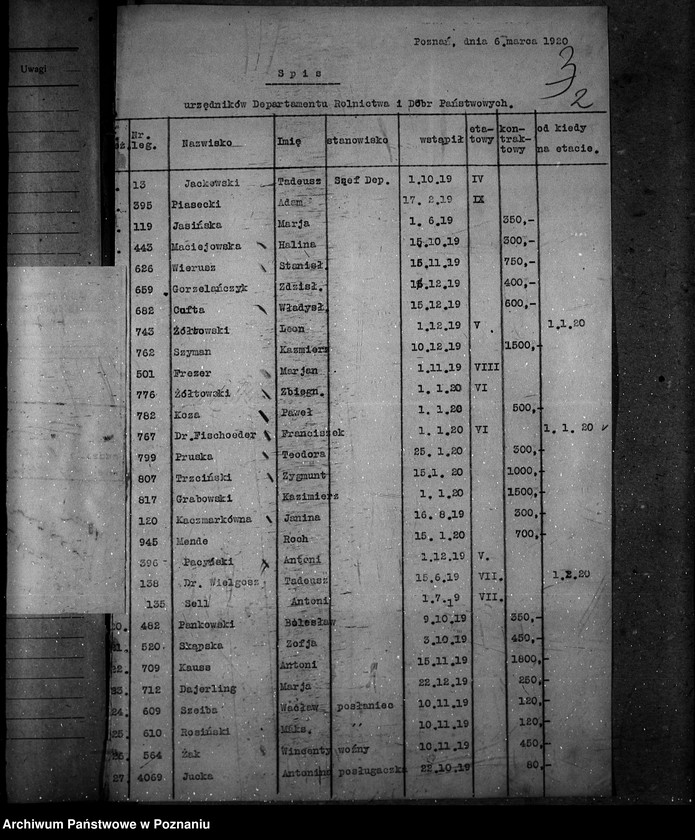 Uwagi
Poznań, dnia 6 marca 1920
3
2
Spis
urzędników Departamentu Rolnictwa i Dóbr Państwowych.
Nr. leg. Nazwisko Imię stanowisko wstąpił eta-towy kon-trak-towy od kiedy na etacie.
13 Jackowski Tadeusz Szef Dep. 1.10.19 IV
395 Piasecki Adam 17. 2.19 IX
119 Jasińska Marja 1. 6.19 350,-
443 Maciejowska Halina 15.10.19 300,-
626 Wierusz Stanisł. 15.11.19 750,-
659 Gorzelańczyk Zdzisł. 12.19 400,-
682 Cufta Władysł. 15.12.19 600,-
743 Żółtowski Leon 1.12.19 V . 1.1.20
762 Szyman Kazmierz 10.12.19 1500,-
501 Frezer Marjan 1.11.19 VIII
776 Żółtowski Zbiegn. 1. 1.20 VI
782 Koza Paweł 1. 1.20 500,-
767 Dr.Fischoeder Franciszek 1. 1.20 VI 1. 1. 20
799 Pruska Teodora 25. 1.20 300,-
807 Trzciński Zygmunt 15.1. 20 1000,-
817 Grabowski Kazimierz 1. 1.20 1500,-
120 Kaczmarkówna Janina 16. 8.19 300,-
945 Mende Roch 15. 1.20 700,-
396 Pacyński Antoni 1.12.19 V.
138 Dr. Wielgosz Tadeusz 15.6.19 VII. 1.2.20
135 Sell Antoni 1.7.19 VII.
20. 482 Pankowski Bolesław 9.10.19 350,-
21. 520 Skąpska Zofja 3.10.19 450,-
22. 709 Kauss Antoni 15.11.19 1800,-
23. 712 Dajerling Marja 22.12.19 250,-
24. 609 Szeiba Wacław posłaniec 10.11.19 120,-
25. 610 Rosiński Maks. " 10.11.19 120,-
26. 564 Żak Wincenty woźny 10.11.19 450,-
27. 4069 Jucka Antonina posługaczka 22.10.19 80,-
Archiwum Państwowe w Poznaniu